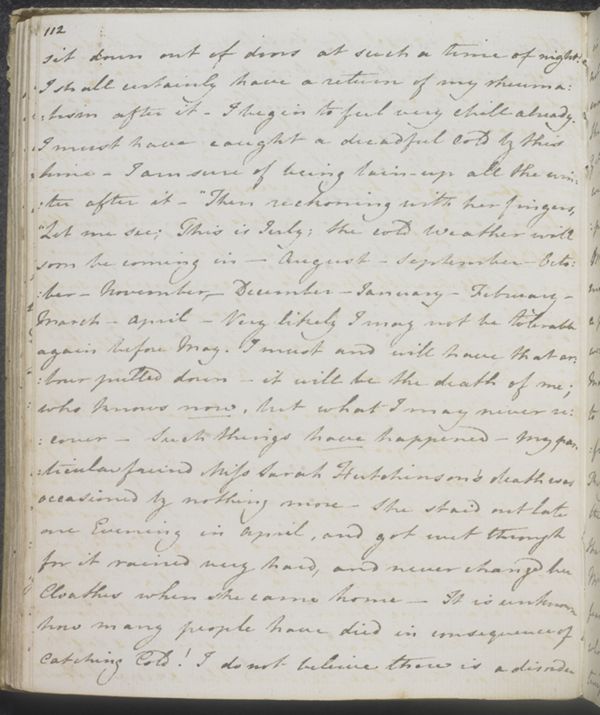 112
sit down out of doors at such a time of night;
I shall certainly have a return of my rheuma:
:tism after it – I begin to feel very chill already.
I must have caught a dreadful cold by this
time – I am sure of being lain-up all the win:
:ter after it – "Then reckoning with her fingers,
"Let me see; This is July; the cold Weather will
soon be coming in – August – September – Octo:
:ber – November, – December – January – February –
March – April – Very likely I may not be tolerable
again before May. I must and will have that ar:
:bour pulled down – it will be the death of me;
who knows now, but what I may never re:
:cover – Such things have happened – My par:
:ticular freind Miss Sarah Hutchinson's death was
occasioned by nothing more – She staid out late
one Evening in April, and got wet through
for it rained very hard, and never changed her
Cloathes when she came home – It is unknown
how many people have died in consequence of
catching Cold! I do not beleive there is a disorder